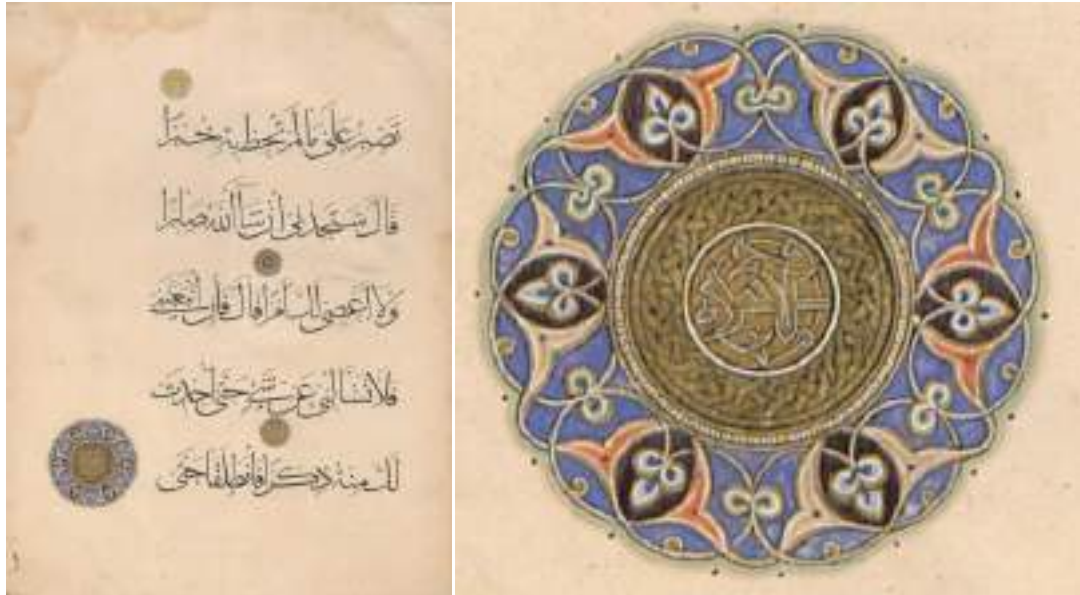 تصبر على ما لم تحط به خبرا
قال ستجدني إن شا الله صابرا
ولا أعصي لك أمرا قال فإن اتبعتني
فلا تسألني عن شيء حتى أحدث
لك منه ذكرا فانطلقا حتى